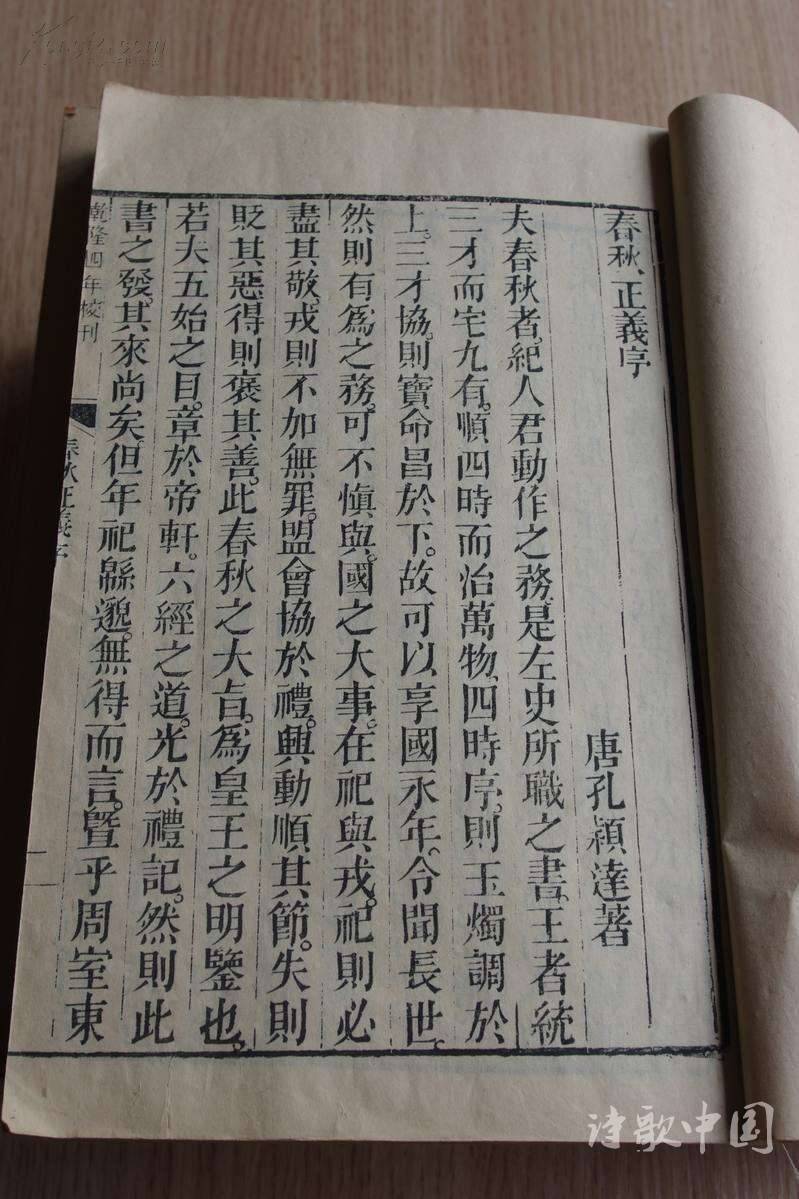 春秋正義序
唐孔穎達著
夫春秋者。紀人君動作之務。是左史所職之書。王者統
三才而宅九有。順四時而治萬物。四時序。則玉燭調於
上。三才協。則寶命昌於下。故可以享國永年。令聞長世。
然則有爲之務。可不慎與。國之大事。在祀與戎。祀則必
盡其敬。戎則不加無罪。盟會協於禮。興動順其節。失則
貶其惡。得則褒其善。此春秋之大旨。爲皇王之明鑒也。
若夫五始之目。章於帝軒。六經之道。光於禮記。然則此
書之發。其來尚矣。但年祀緜邈。無得而言。暨乎周室東
乾隆四年校刊
春秋正義序
诗歌中国